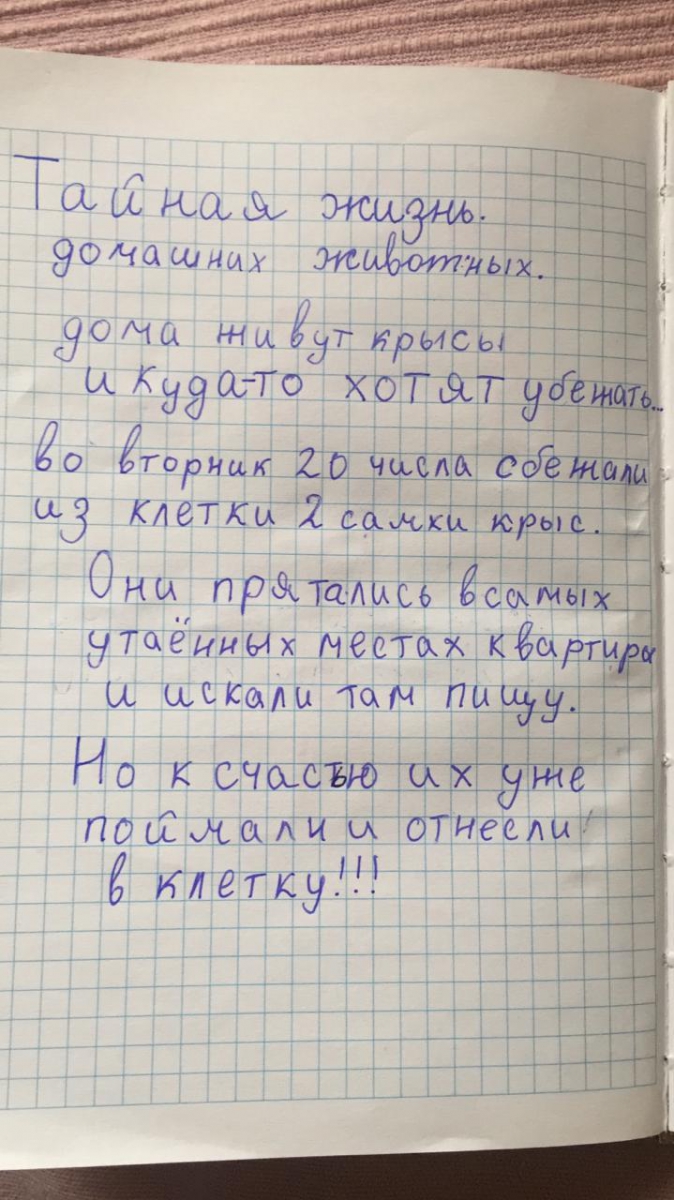 Тайная жизнь.
домашних животных.
дома живут крысы
и куда-то хотят убежать...
во вторник 20 числа сбежали
из клетки 2 самки крыс.
Они прятались в самых
утаённых местах квартира
и искали там пищу.
Но к счастью их уже
поймали и отнесли
в клетку!!!